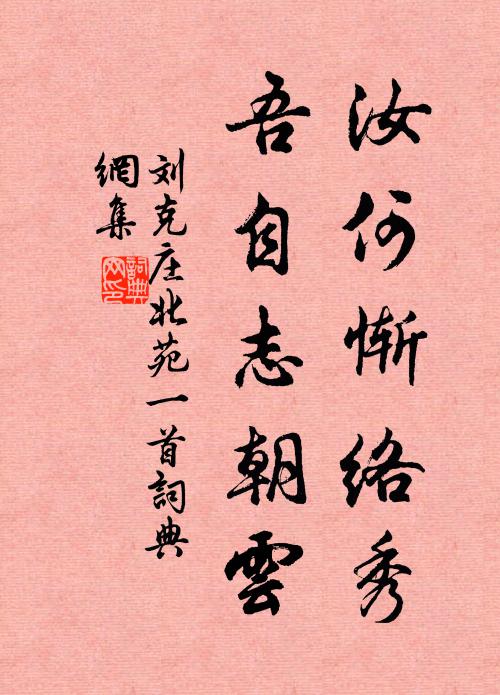 汝何惭络秀
吾自志朝雲
刘克庄北苑一首詞典
網集
詞典网印